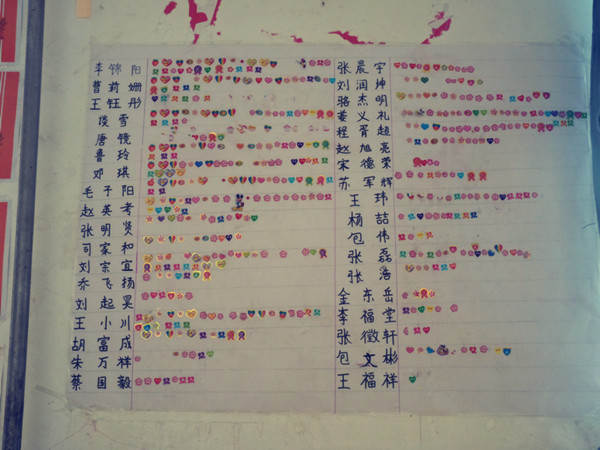 李锦阳
曹莉姗
王钰彤
张雪
唐镜
鲁玲
邓琪
毛子阳
赵英考
张明贤
司家和
刘宗宜
乔飞扬
刘起昊
王小川
胡富成
朱万祥
蔡国毅
张晨宇
刘润坤
骆杰明
董义礼
程霄超
赵旭亮
宋德荣
苏军辉
王玮
杨喆
包伟
张磊
张浩
金东岳
李福堂
张徵轩
包文彬
王福祥